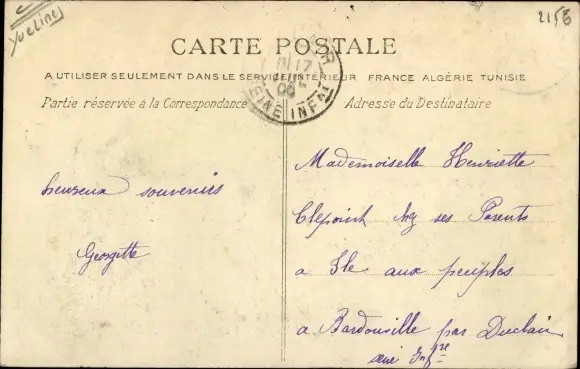 Yvelines
2156
CARTE POSTALE
A UTILISER SEULEMENT DANS LE SERVICE INTÉRIEUR FRANCE ALGÉRIE TUNISIE
Partie réservée à la Correspondance
Adresse du Destinataire
17
SEINE INFRE
heureux souvenirs
Georgette
Mademoiselle Henriette
chez ses Parents
a Ile aux peuples
a Bardouville par Duclair
Infre